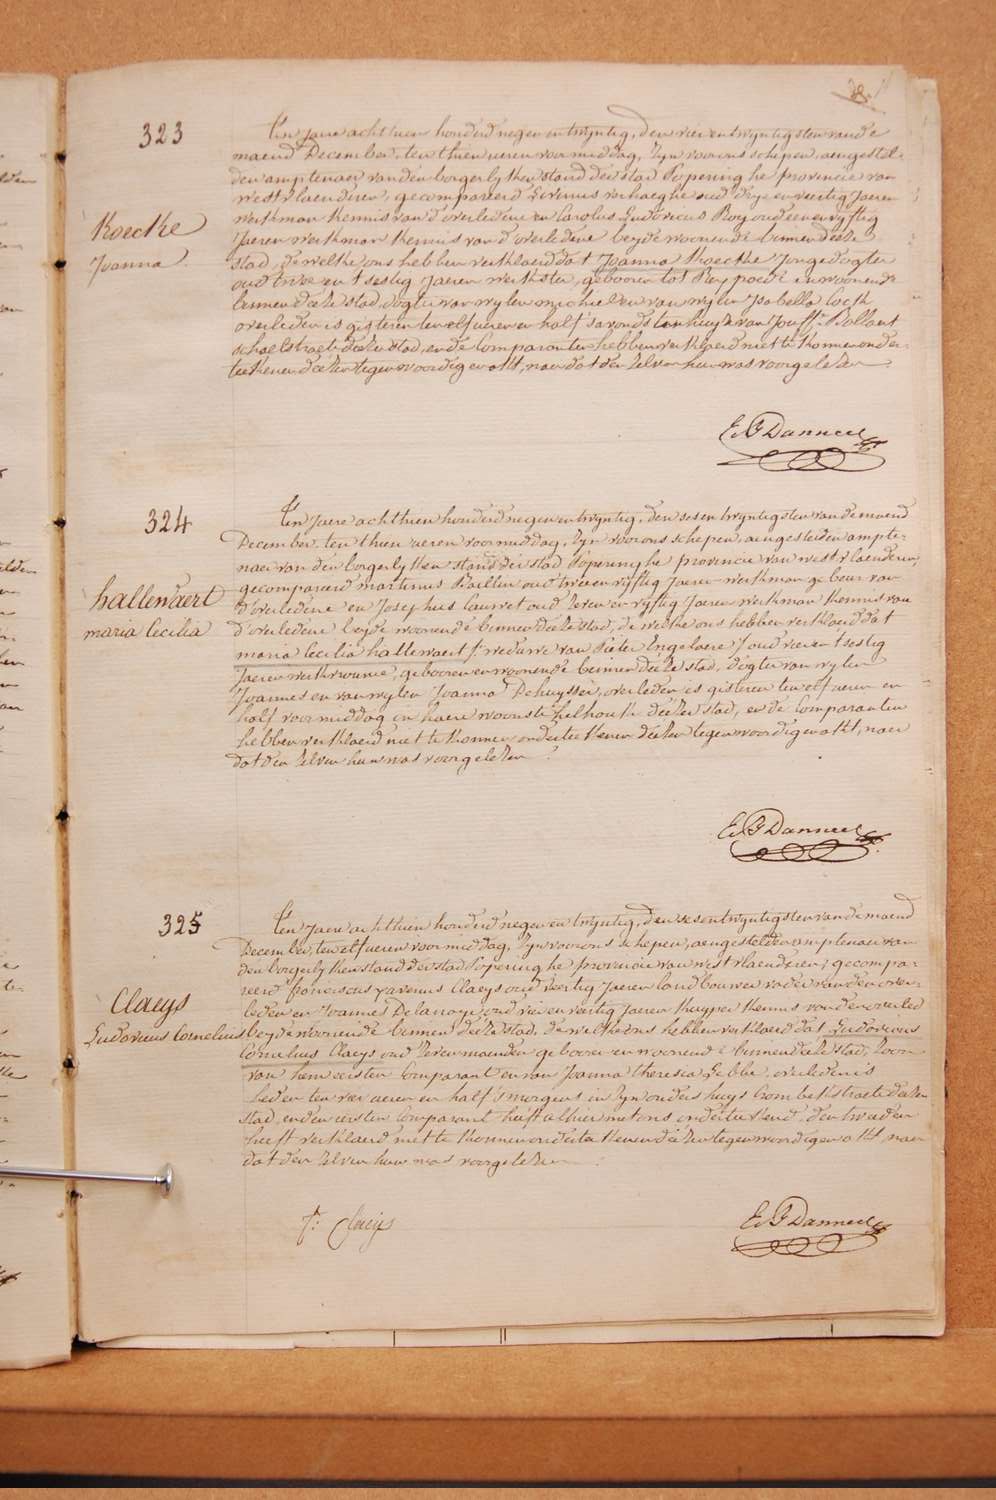 323
Koecke
Joanna
Ten Jaere achthien honderd negen en twyntig, den vier en twyntigsten van de
maend December, ten thien ueren voormiddag, Zyn voor ons schepen, aengestel-
den amptenaer van den borgerlyken stand der stad Poperinghe provincie van
westvlaenderen, gecompareerd Livinus verhaeghe oud dry en veertig Jaeren
werkman kennis van d'overledene en Carolus Ludovicus Roy oud een en vyftig
Jaeren werkman kennis van d'overledene beyde woonende binnen deeze
stad, de welke ons hebben verklaerd dat Joanna Koecke Jonge dogter
oud twee en t'sestig Jaeren werkster, gebooren tot Reypoede en woonende
binnen deeze stad, dogter van wylen michiel en van wylen Isabella Cock
overleden is gisteren ten elf ueren en half s'avonds ten huyze van Jouff.e Bollaert
schaelstraete deezer stad, en de Comparanten hebben verklaerd niet te konnen onder-
teekenen deezen tegenwoordigen akt, naer dat den zelven hun was voorgelezen
E. G Danneel
324
hallewaert
maria Cecilia
Ten Jaere achthien honderd negen en twyntig, den ses en twyntigsten van de maend
December, ten thien ueren voormiddag, Zyn voor ons schepen, aengestelden ampte-
naer van den borgerlyken stand der stad Poperinghe provincie van westvlaenderen,
gecompareerd martinus Baillin oud twee en vyftig Jaeren werkman gebeur van
d'overledene en Josephus Cauwet oud zeven en vyftig Jaeren werkman kennis van
d'overledene beyde woonende binnen deeze stad, de welke ons hebben verklaerd dat
maria Cecilia hallewaert / weduwe van Pieter Engelaere / oud vier en t'sestig
Jaeren werkvrouwe, gebooren en woonende binnen deeze stad, dogter van wylen
Joannes en van wylen Joanna Dehuysser, overleden is gisteren ten elf ueren en
half voormiddag in haere woonste helhoek deezer stad, en de Comparanten
hebben verklaerd niet te konnen onderteekenen deezen tegenwoordigen akt, naer
dat den zelven hun was voorgelezen
E. G Danneel
325
Claeys
Ludovicus Cornelius
Ten Jaere achthien honderd negen en twyntig, den ses en twyntigsten van de maend
December, ten elf ueren voormiddag, Zyn voor ons schepen, aengestelden amptenaer van
den borgerlyken stand der stad Poperinghe provincie van westvlaenderen, gecompa-
reerd franciscus Claeys oud veertig Jaeren landbouwer vader van den over-
leden en Joannes Delanoye oud vier en veertig Jaeren kuyper kennis van den overled
beyde woonende binnen deeze stad, de welke ons hebben verklaerd dat Ludovicus
Cornelius Claeys oud zeven maenden gebooren en woonende binnen deeze stad, zoon
van hem eersten Comparant en van Joanna theresia Lebbe, overleden is
heden ten vier ueren en half s'morgens in zyn ouders huys Crombekstraete deezer
stad, en den eersten Comparant heeft alhier met ons onderteekend, den tweeden
heeft verklaerd niet te konnen onderteekenen deezen tegenwoordigen akt, naer
dat den zelven hun was voorgelezen
f: Claeys
E. G Danneel